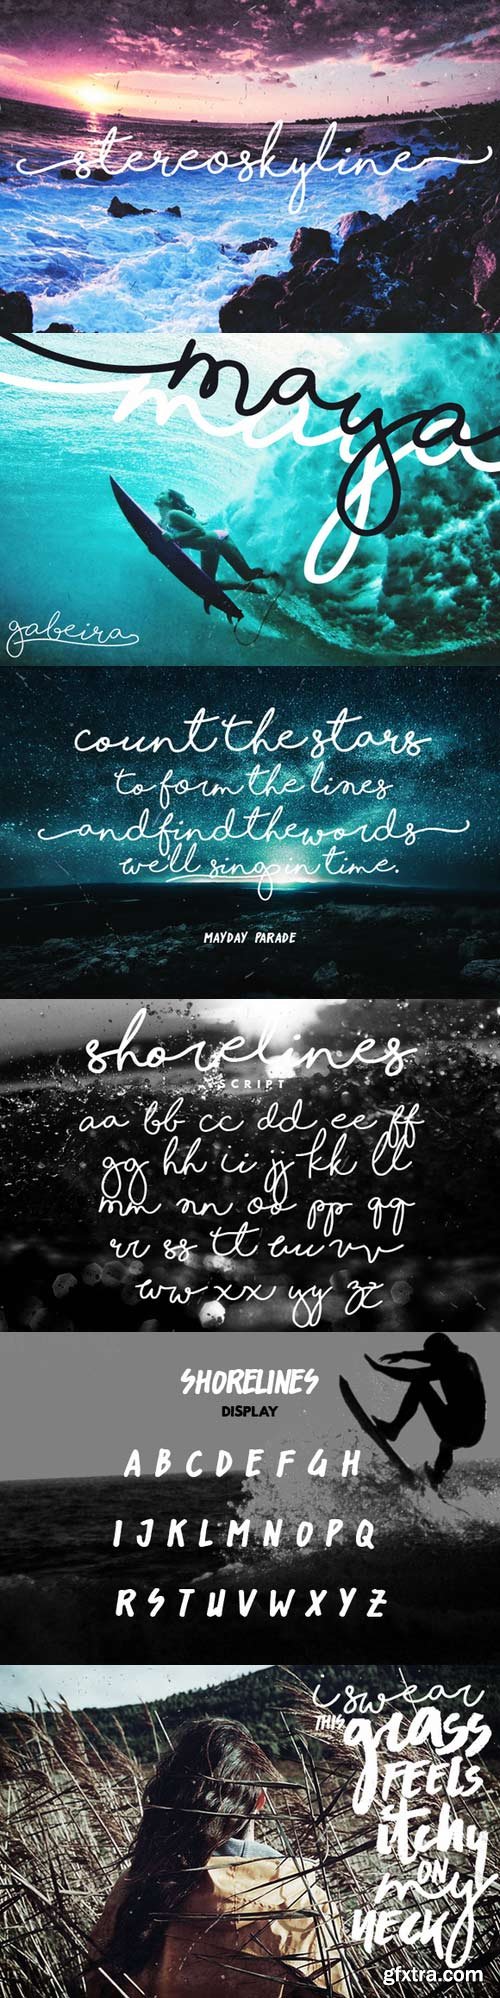 stereoskyline
maya
maya
gabeira
count the stars
to form the lines
andfindthewords
we'll sing in time.
MAYDAY PARADE
shorelines
SCRIPT
aa bb cc dd ee ff
gg hh ii jj kk ll
mm nn oo pp qq
rr ss tt uu vv
ww xx yy zz
SHORELINES
DISPLAY
A B C D E F G H
I J K L M N O P Q
R S T U V W X Y Z
i swear
THIS grass
FEELS
itchy
ON
my
NECK
gfxtra.com